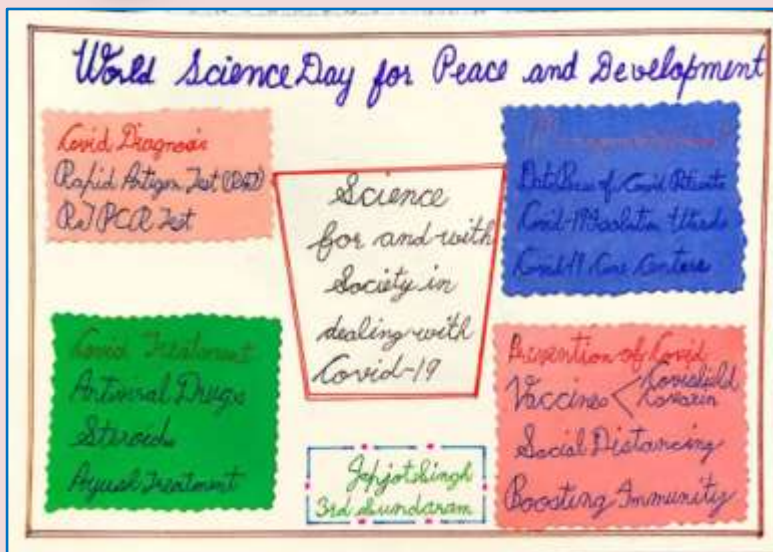 World Science Day for Peace and Development
Covid Diagnosis
Rapid Antigen Test (RAT)
RTPCR Test
Science
for and with
Society in
dealing with
Covid-19
DataBase of Covid Patients
Covid-19 Isolation Wards
Covid-19 Care Centers
Covid Treatment
Antiviral Drugs
Steroids
Ayush Treatment
Prevention of Covid
Vaccines < Covishield
Covaxin
Social Distancing
Boosting Immunity
Japjot Singh
3rd Sundaram